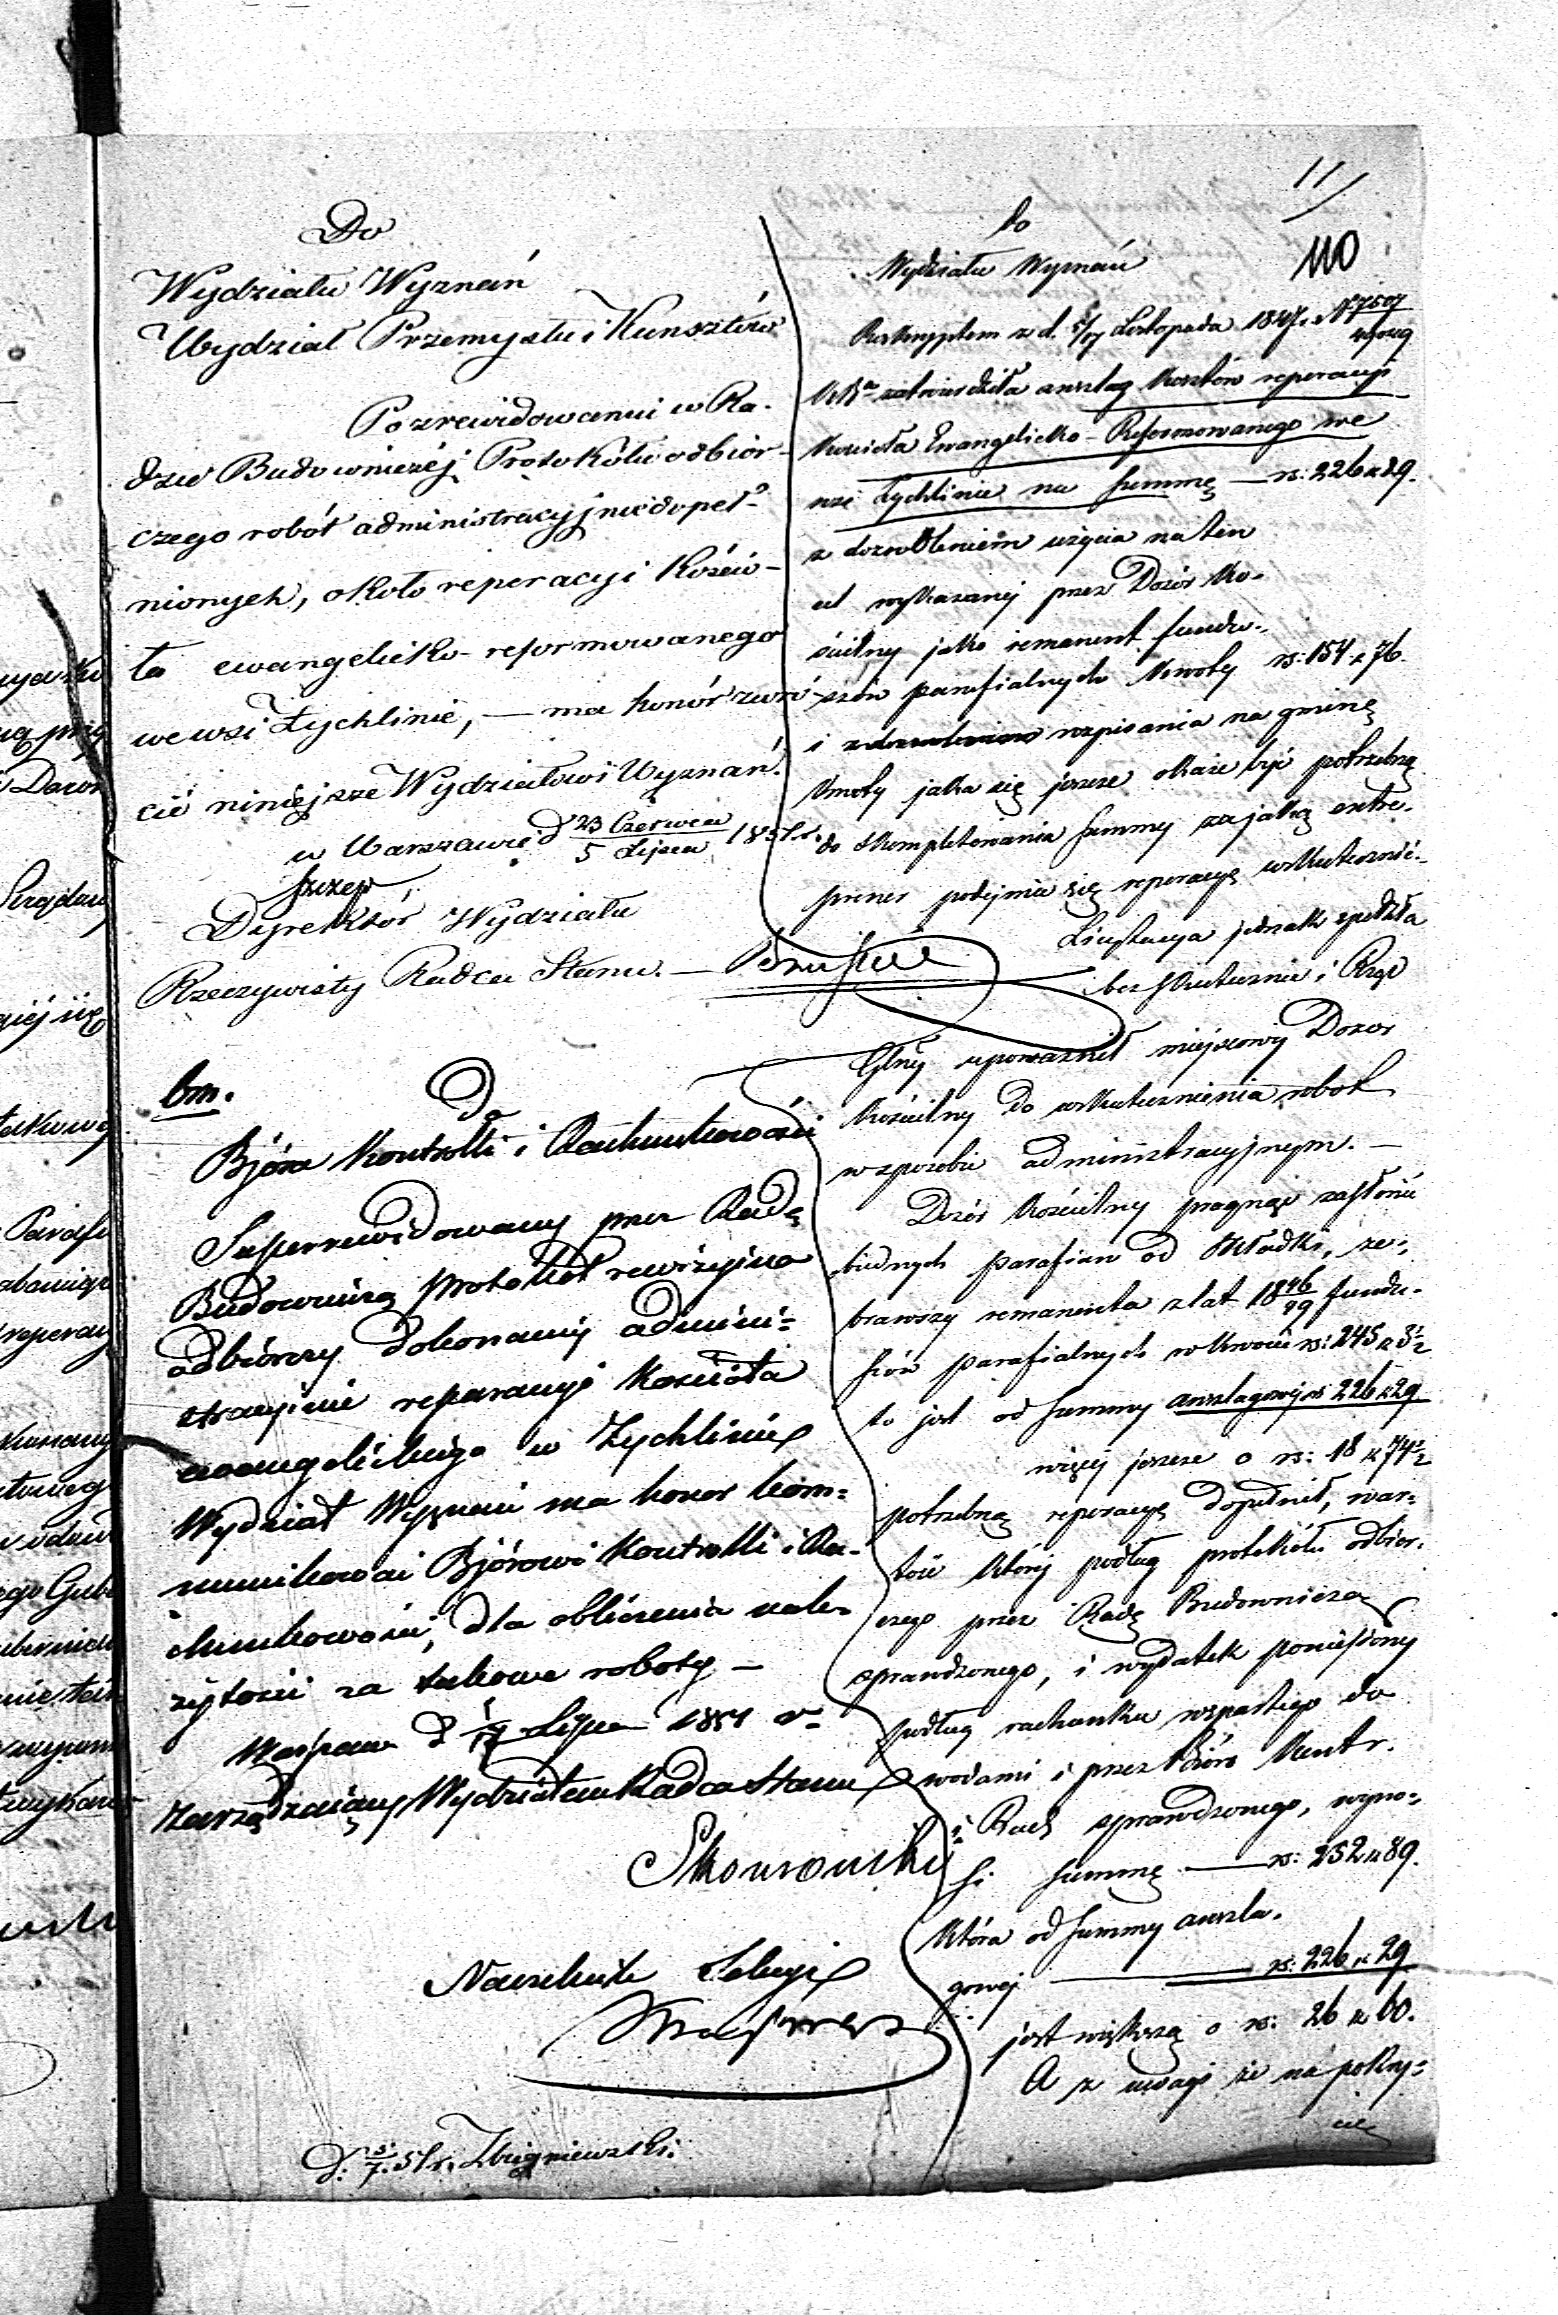 11/
110
Do
Wydziału Wyznań
Wydział Przemysłu i Kunsztów
Po zrewidowaniu w Ra-
dzie Budowniczéj Protokółu odbior-
czego robót administracyjnie dopeł-
nionych, około reperacyi Kościo-
ła ewangelicko-reformowanego
we wsi Żychlinie, — ma honór zwró-
cić niniejsze Wydziałowi Wyznań.
w Warszawie d 23 Czerwca / 5 Lipca 1851 r.
Dyrektór Wydziału
Rzeczywisty Radca Stanu. —
bm.
Do
Bjóra Kontrolli i Rachunkowości
Superrewidowany przez Radę
Budowniczą protokół rewizyjno
odbiorczy dokonanéj admini-
stracyjnie reparacyi Kościoła
ewangelickiego w Żychlinie
Wydział Wyznań ma honor kom-
munikować Bjórowi Kontrolli i Ra-
chunkowości, dla obliczenia nale-
żytości za takowe roboty —
Warszawa d Lipca 1851 r.
Zarządzający Wydziałem Radca Stanu
Naczelnik Sekcyi
d: 5/7. 51 r. Zbigniewski.
do
Wydziału Wyznań
Reskryptem z d. 5/17 Listopada 1847 r. N 7507
zatwierdziła anszlag kosztów reperacyi
kościoła Ewangelicko-Reformowanego we
wsi Żychlinie na summę — rs: 226 k 29.
z dozwoleniem użycia na ten
cel wykazanéj przez Dozór Ko-
ścielny jako remanent fundu-
szów parafialnych kwoty rs: 154 k 76.
i rozpisania na gminę
kwoty jaka się jeszcze okaże być potrzebną
do skompletowania summy za jaką entre-
prener podejmie się reperacyę uskutecznić.
Licytacya jednak spełzła
bez skutecznie i Rząd
Gbny upoważnił miejscowy Dozór
Kościelny do uskutecznienia robót
w sposobie administracyjnym. —
Dozór Kościelny pragnąc zasłonić
biednych parafian od składki, ze-
brawszy remanenta z lat 1846/49 fundu-
szów parafialnych w kwocie rs: 245 k 3½
to jest od summy anszlagowéj rs 226 k 29
więcéj jeszcze o rs: 18 k 74½
potrzebną reperacyę dopełnił, war-
tość któréj podług protokółu odbior-
czego przez Radę Budowniczą
sprawdzonego, i wydatek poniesiony
podług rachunku wspartego do
wodami i przez Biuro Kontr.
i Rach sprawdzonego, wyno-
si summę — rs: 252 k 89.
która od summy anszla-
gowéj — rs: 226 k 29
jest większą o rs: 26 k 60.
A z uwagi że na pokry-
cie